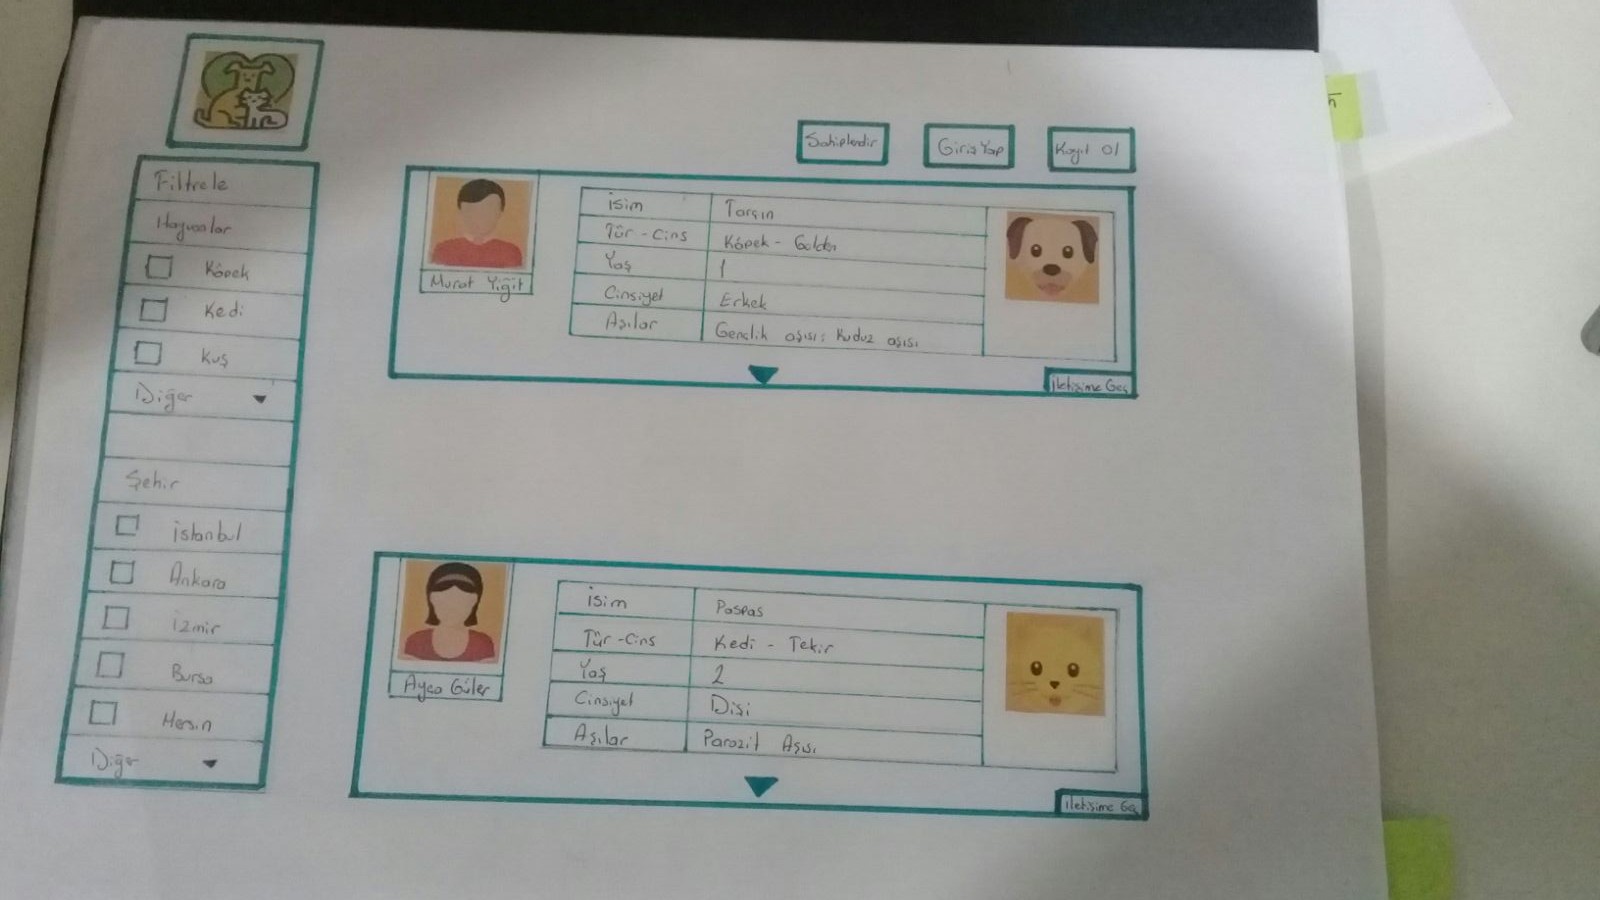 Sahiplendir
Giriş Yap
Kayıt Ol
Filtrele
Hayvanlar
Köpek
Kedi
Kuş
Diğer
Şehir
İstanbul
Ankara
İzmir
Bursa
Mersin
Diğer
Murat Yiğit
isim Tarçın
Tür - Cins Köpek - Golden
Yaş 1
Cinsiyet Erkek
Aşılar Gençlik aşısı; Kuduz aşısı
iletişime Geç
Ayça Güler
isim Paspas
Tür - Cins Kedi - Tekir
Yaş 2
Cinsiyet Dişi
Aşılar Parazit Aşısı
iletişime Geç